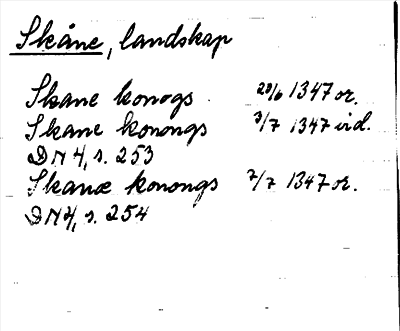 Skåne, landskap
Skane konogs 29/6 1347 or.
Skane konongs 7/7 1347 vid.
DN 4, s. 253
Skanæ konongs 7/7 1347 or.
DN 4, s. 254